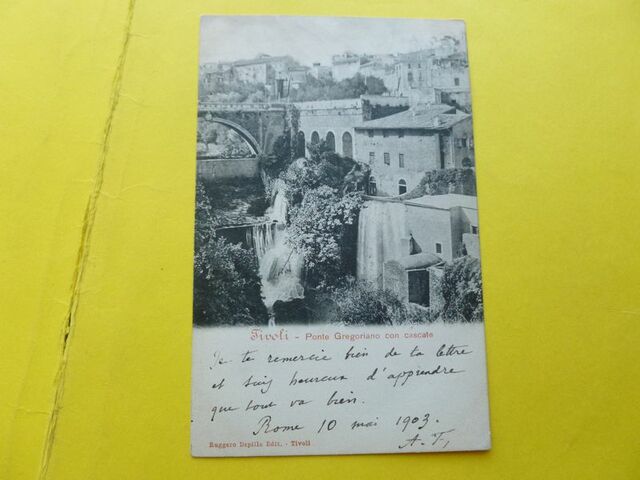 Tivoli - Ponte Gregoriano con cascate
Je te remercie bien de ta lettre
et suis heureux d'apprendre
que tout va bien.
Rome 10 mai 1903.
A. F.
Ruggero Depilla Edit. - Tivoli